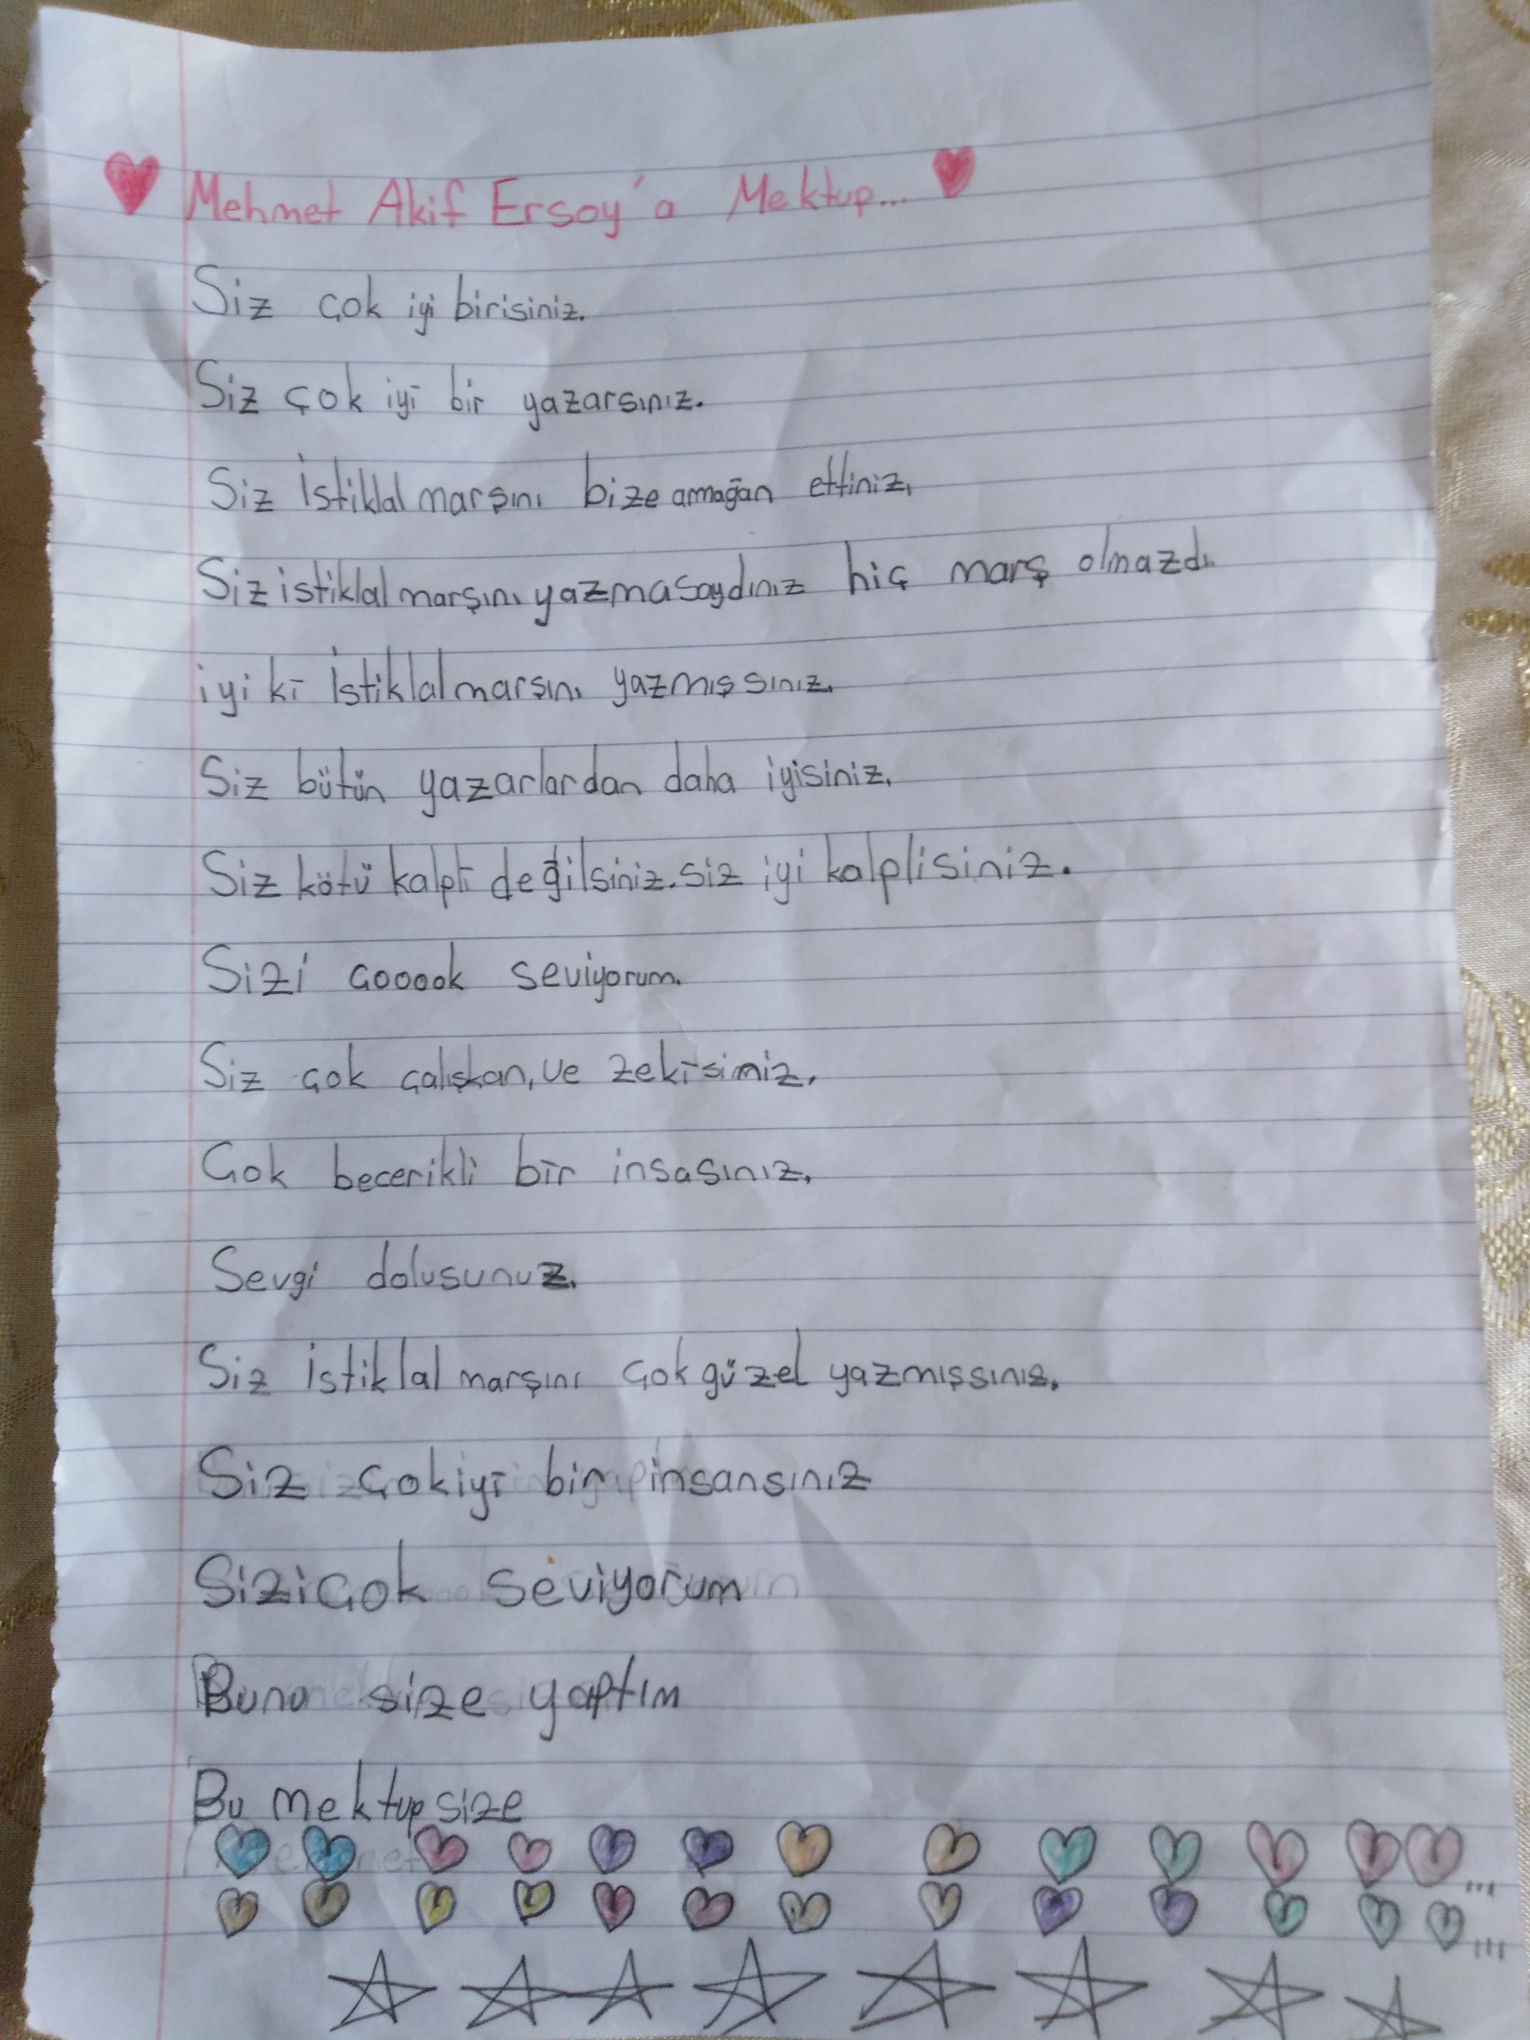 Mehmet Akif Ersoy'a Mektup...
Siz çok iyi birisiniz.
Siz çok iyi bir yazarsınız.
Siz İstiklal marşını bize armağan ettiniz.
Siz istiklal marşını yazmasaydınız hiç marş olmazdı.
iyi ki İstiklal marsını yazmışsınız.
Siz bütün yazarlardan daha iyisiniz.
Siz kötü kalpli değilsiniz. siz iyi kalplisiniz.
Sizi çooook seviyorum.
Siz çok çalışkan, ve zekisiniz.
Çok becerikli bir insasınız.
Sevgi dolusunuz.
Siz İstiklal marşını çok güzel yazmışsınız.
Siz çok iyi bir insansınız
Sizi çok seviyorum
Bunu size yaptım
Bu mektup size